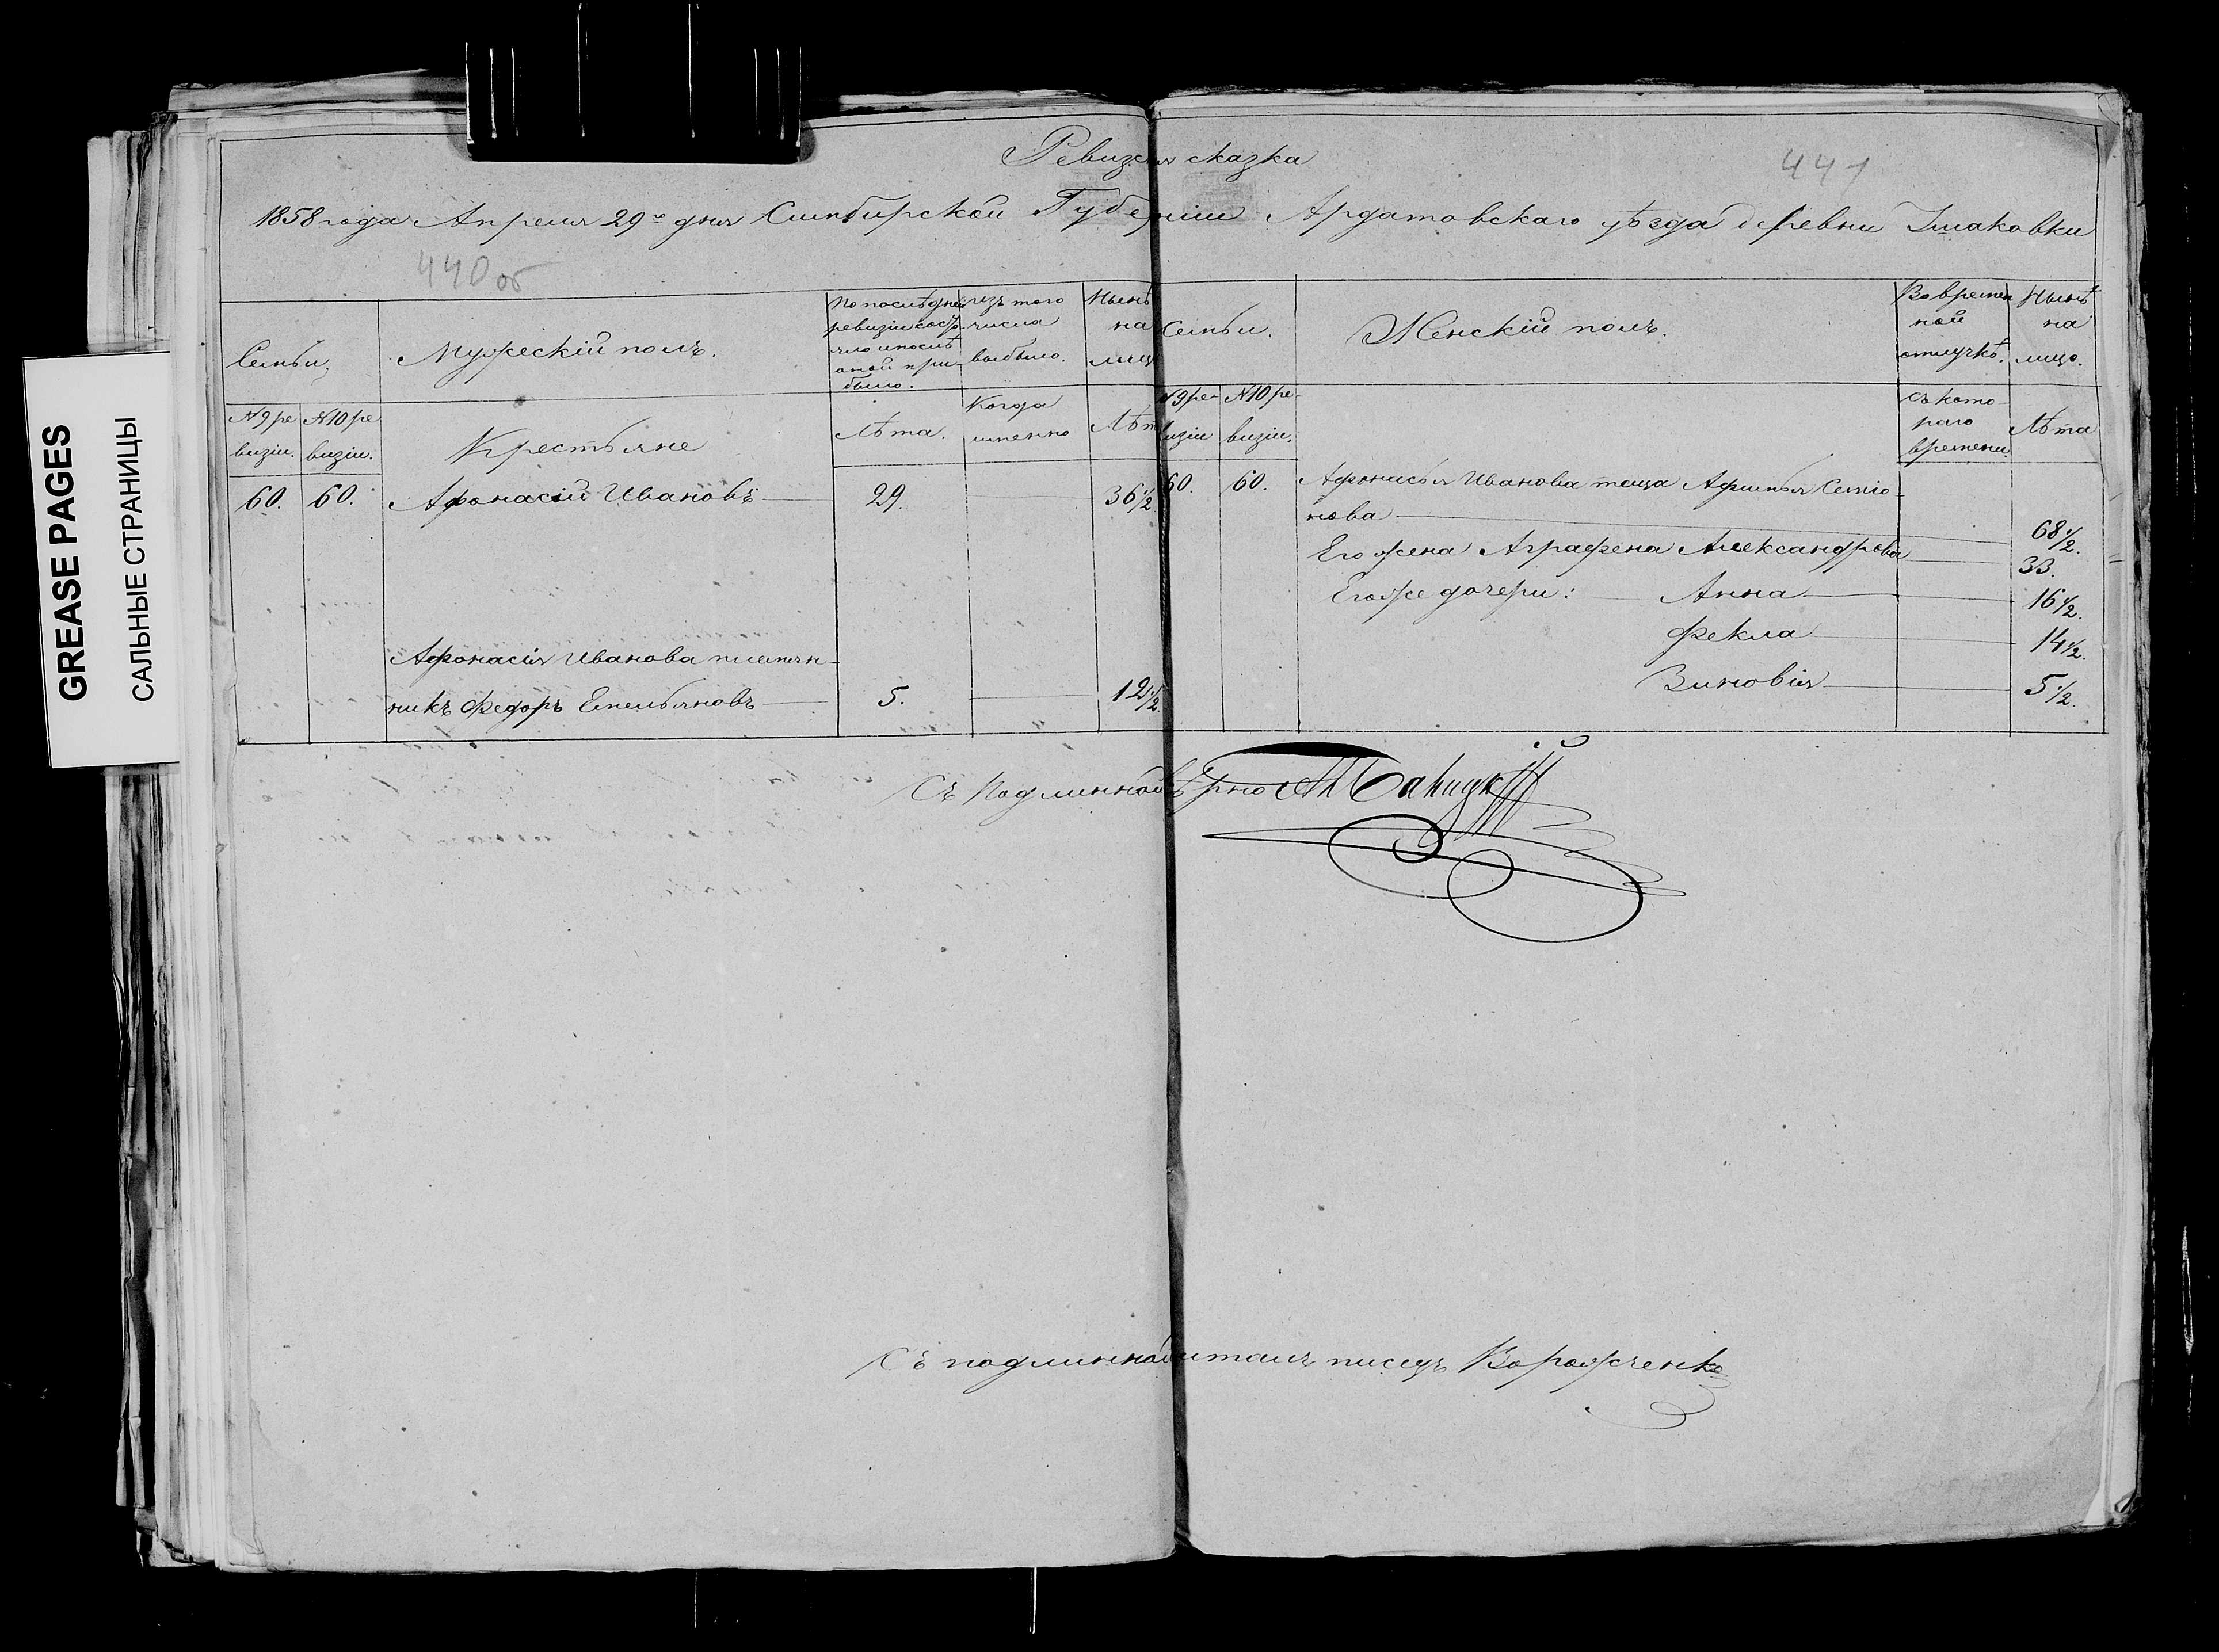 GREASE PAGES
САЛЬНЫЕ СТРАНИЦЫ
Ревизская сказка
441
1858 года Апреля 29го дня Симбирской Губерніи Ардатовскаго уѣзда деревни Ишаковки
440 об
Семьи.
Мужескій полъ.
По послѣдней ревизіи состояло и послѣ оной прибыло.
изъ того числа выбыло.
Нынѣ на лицо
Семьи.
Женскій полъ.
Во временной отлучкѣ.
Нынѣ на лицо.
№ 9 ревизіи.
№ 10 ревизіи.
Крестьяне
Лѣта.
Когда именно
Лѣта
№ 9 ревизіи
№ 10 ревизіи.
Съ котораго времени
Лѣта
60. 60. Афонасій Ивановъ 29. 36 1/2
60. 60. Афонасья Иванова теща Афимья Семіо-
нова 68 1/2.
Его жена Аграфена Александрова 33.
Его же дочери: Анна 16 1/2.
Фекла 14 1/2.
Зиновія 5 1/2.
Афонасія Иванова племян-
никъ Федоръ Емельяновъ 5. 12 1/2.
Съ Подлинной вѣрно
Съ подлинной читалъ писецъ